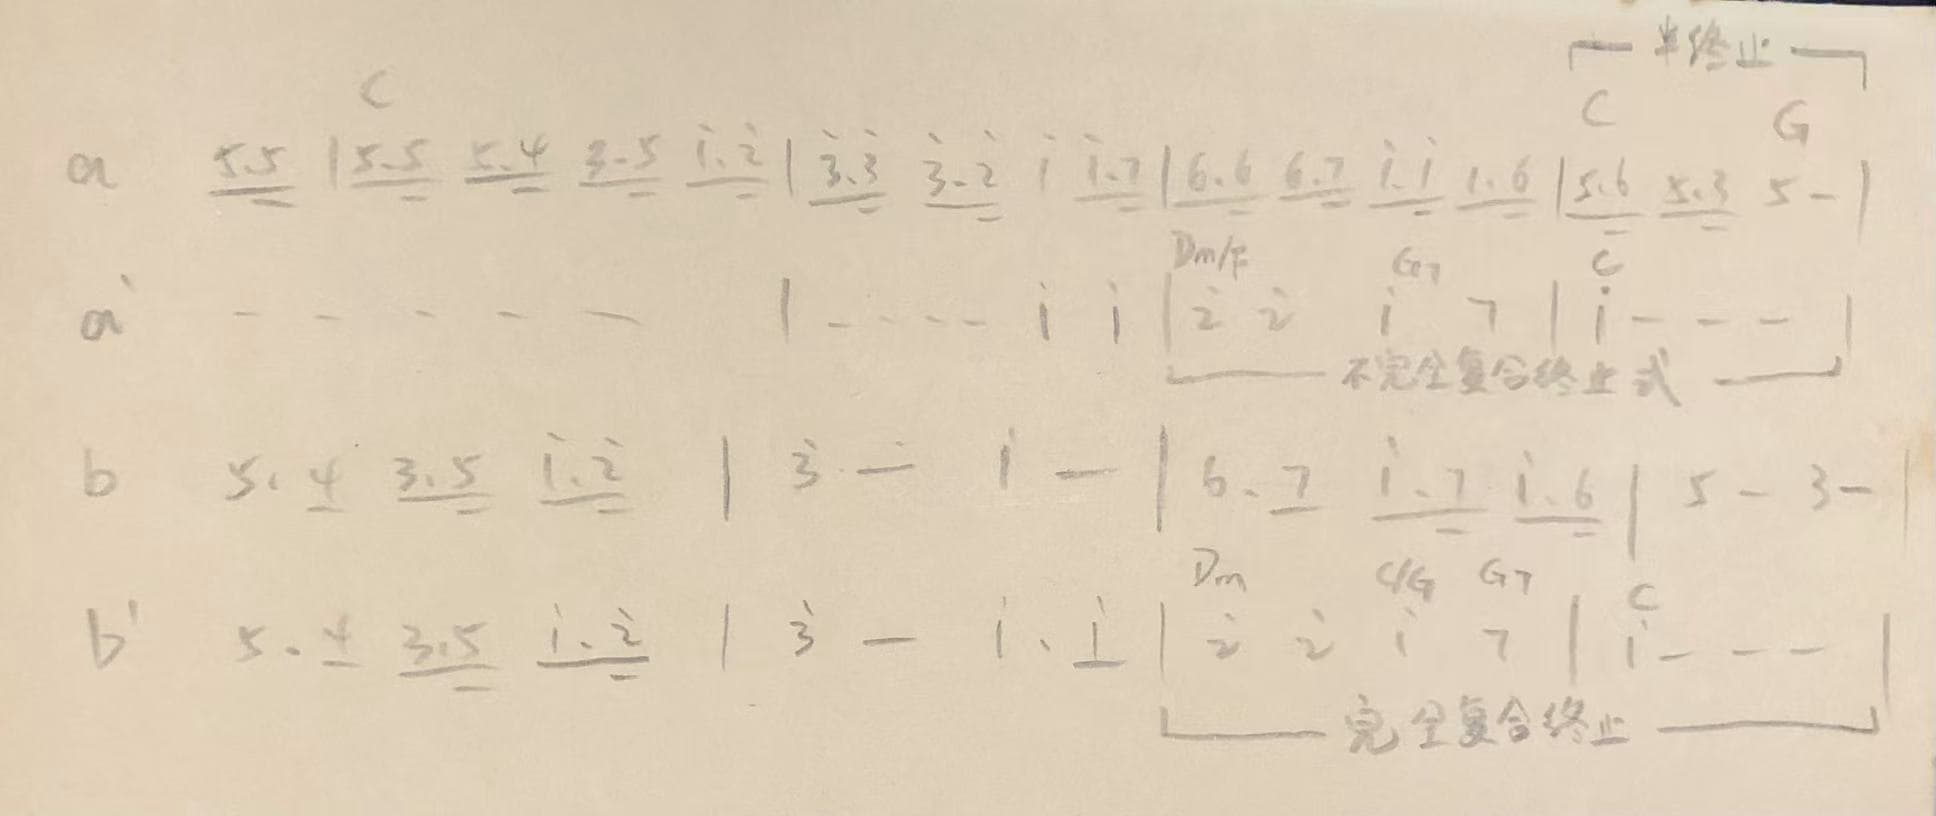 半终止
C C G
a 5.5 | 5.5 5.4 3.5 i.2̇ | 3̇.3̇ 3̇.2̇ i i.7 | 6.6 6.7 i.i i.6 | 5.6 5.3 5 - |
Dm/F G7 C
a' - - - - - | - - - - i i | 2̇ 2̇ i 7 | i - - - |
不完全复合终止式
b 5. 4 3.5 i.2̇ | 3̇ - i - | 6. 7 i.7 i.6 | 5 - 3 - |
Dm C/G G7 C
b' 5. 4 3.5 i.2̇ | 3̇ - i. i | 2̇ 2̇ i 7 | i - - - |
完全复合终止